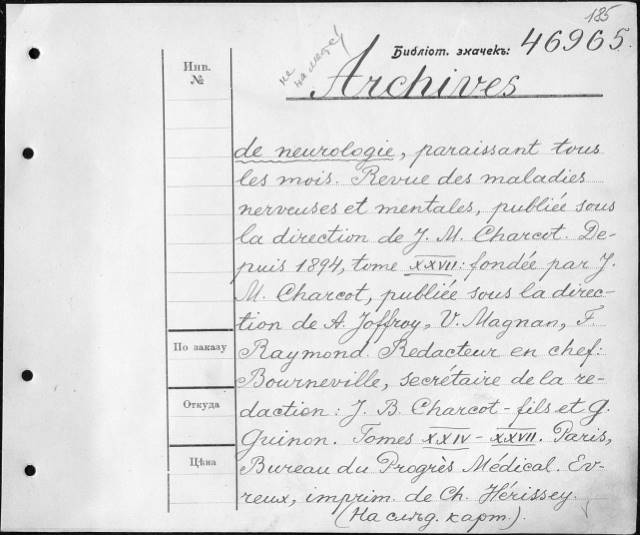 185
Библіот. значекъ: 46965.
не
на месте!
Инв.
№
Archives
de neurologie, paraissant tous
les mois. Revue des maladies
nerveuses et mentales, publiée sous
la direction de J. M. Charcot. De-
puis 1894, tome XXVII: fondée par J.
M. Charcot, publiée sous la direc-
tion de A. Joffroy, V. Magnan, F.
По заказу
Raymond. Redacteur en chef:
Bourneville, secrétaire de la re-
Откуда
daction: J. B. Charcot-fils et G.
Guinon. Tomes XXIV-XXVII. Paris,
Цѣна
Bureau du Progrès Médical. Ev-
reux, imprim. de Ch. Hérissey.
(На слѣд. карт.).